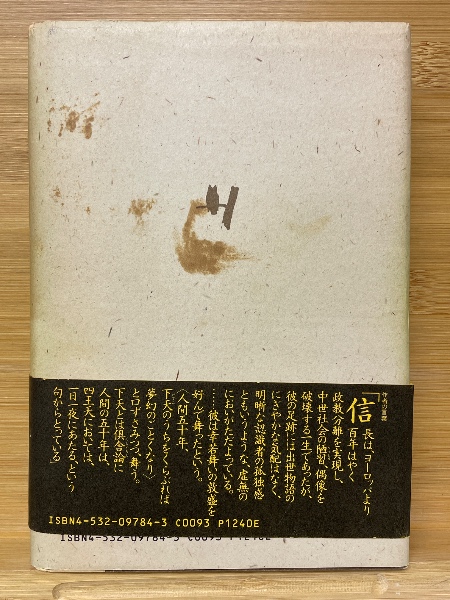 「信長は、ヨーロッパより
百年はやく
政教分離を実現し、
中世社会の陋習、偶像を
破壊する一生であったが、
彼の足跡には出世物語の
にぎやかな気配はなく、
明晰な認識者の孤独感
ともいうような、虚無の
においがただよっている。
……彼は幸若舞の敦盛を
好んで舞ったという。
〈人間五十年、
下天のうちをくらぶれば
夢幻のごとくなり〉
と口ずさみつつ、舞う。
下天とは倶舎論に
人間の五十年は、
四王天においては、
一日一夜にあたる、という
句からとっている」
ISBN4-532-09784-3 C0093 P1240E
ISBN4-532-09784-3 C0093 P1240E